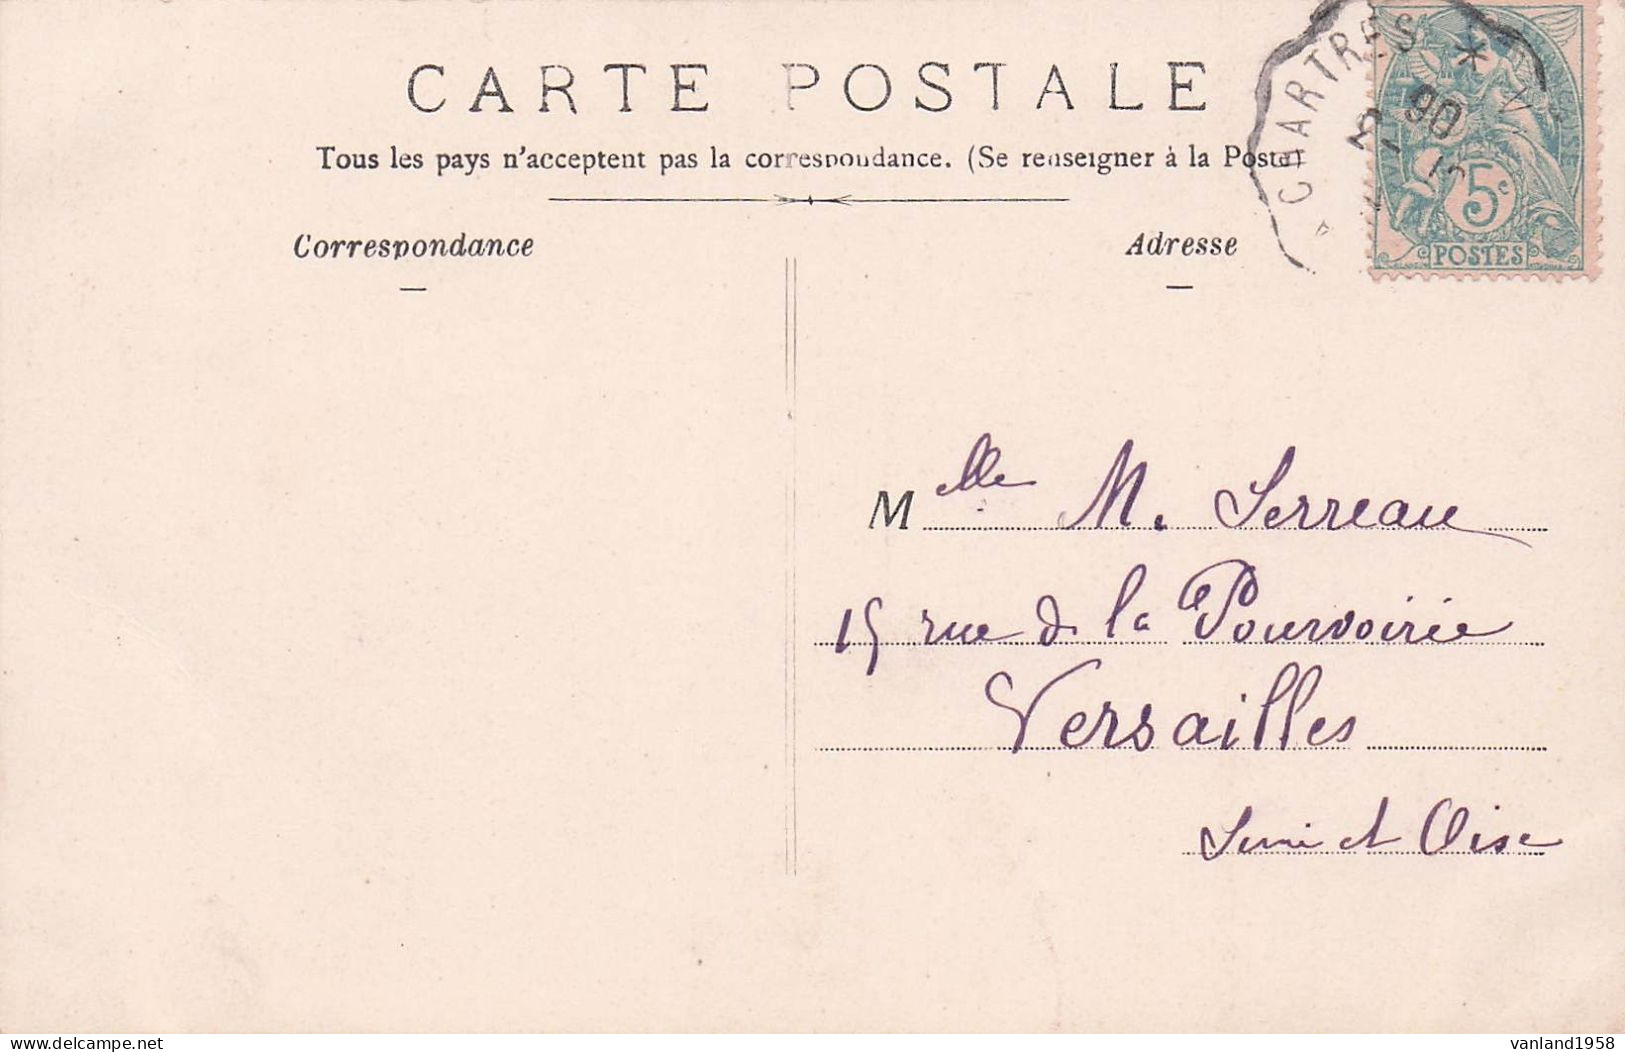 CARTE POSTALE
Tous les pays n'acceptent pas la correspondance. (Se renseigner à la Poste)
Correspondance
Adresse
CHARTRES *
06
5c
POSTES
Melle M. Serreau
15 rue de la Pourvoirie
Versailles
Seine et Oise
vanland1958